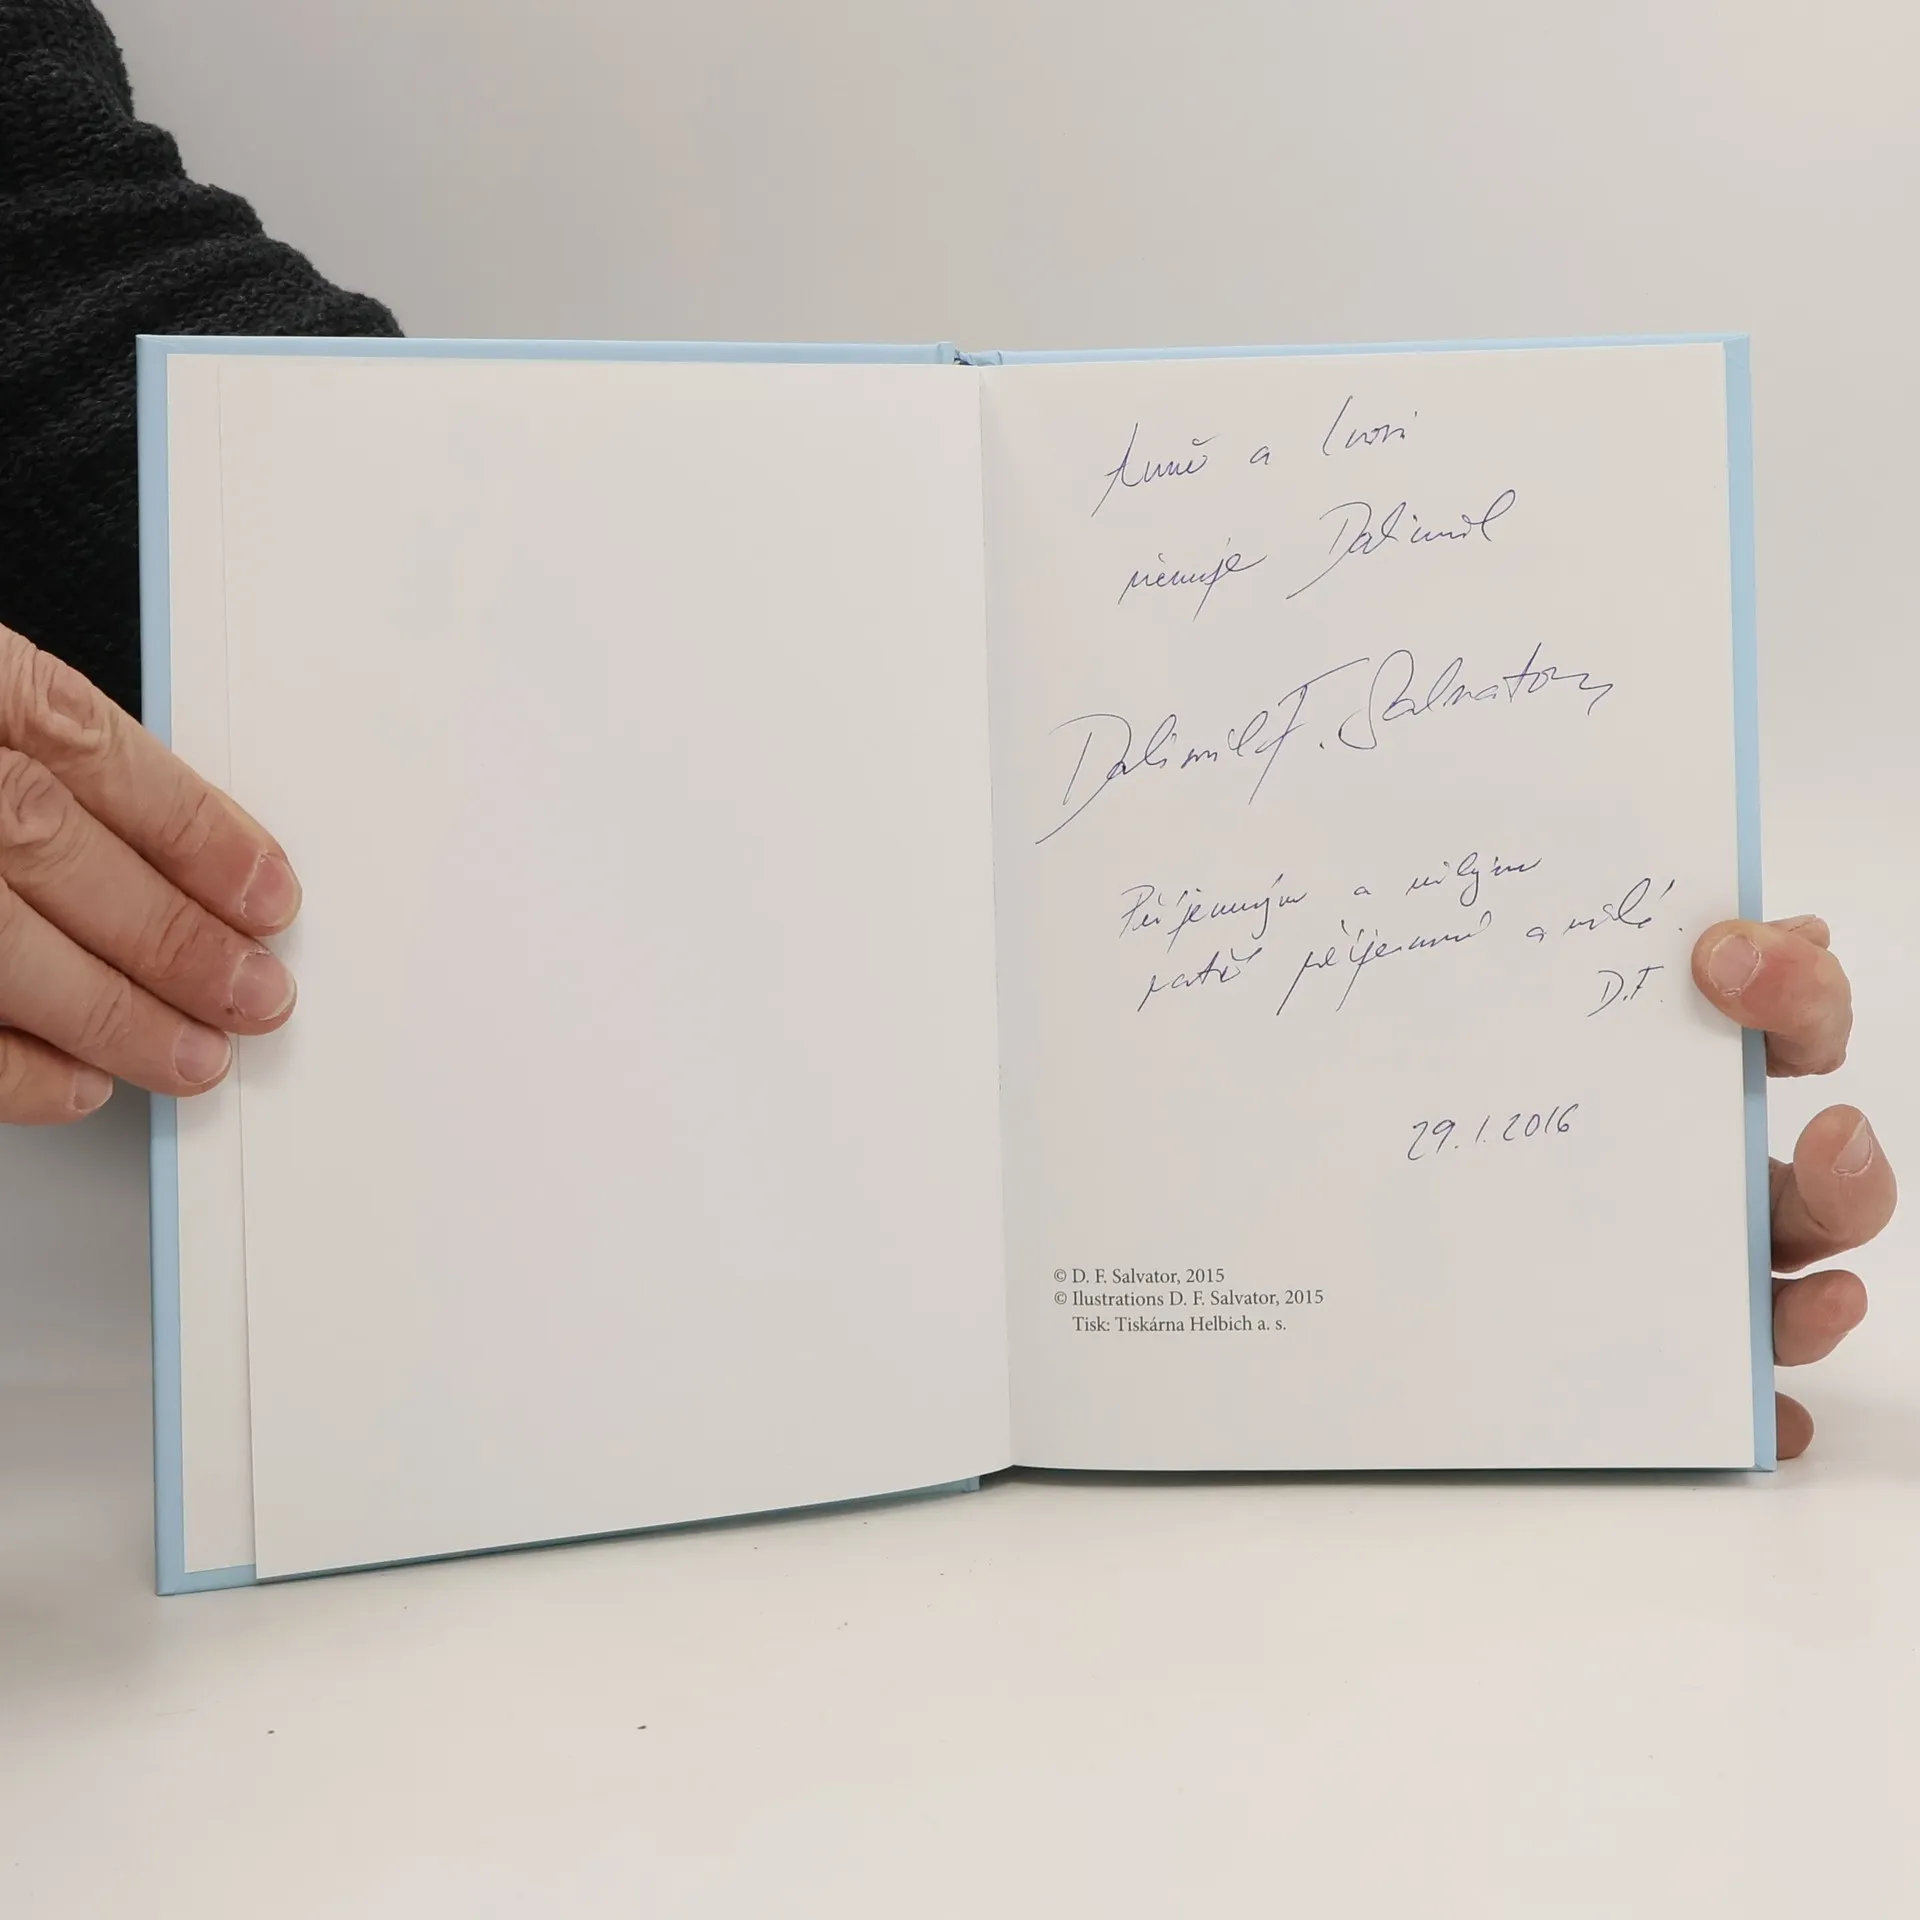 Anně a Ivovi
věnuje Dalimil
Dalimil F. Salvator
Příjemným a milým
patří příjemné a milé.
D.F.
29.1.2016
© D. F. Salvator, 2015
© Ilustrations D. F. Salvator, 2015
Tisk: Tiskárna Helbich a. s.